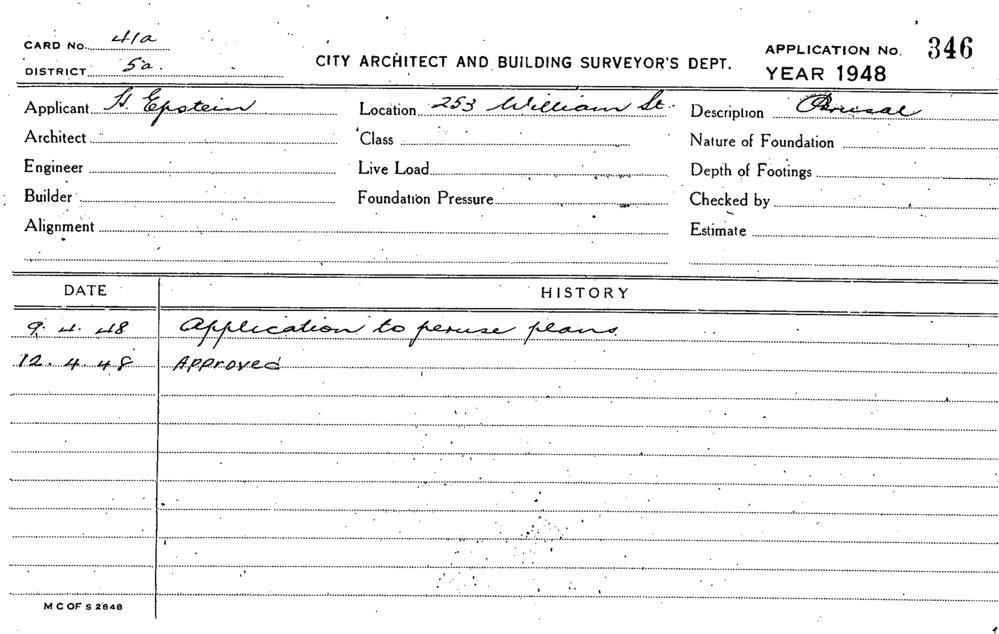 CARD No. 41a
DISTRICT 5a
CITY ARCHITECT AND BUILDING SURVEYOR'S DEPT.
APPLICATION No. 346
YEAR 1948
Applicant H. Epstein Location 253 William St. Description Perusal
Architect Class Nature of Foundation
Engineer Live Load Depth of Footings
Builder Foundation Pressure Checked by
Alignment Estimate
DATE HISTORY
9. 4. 48 Application to peruse plans.
12. 4. 48 Approved
M C OF S 2848